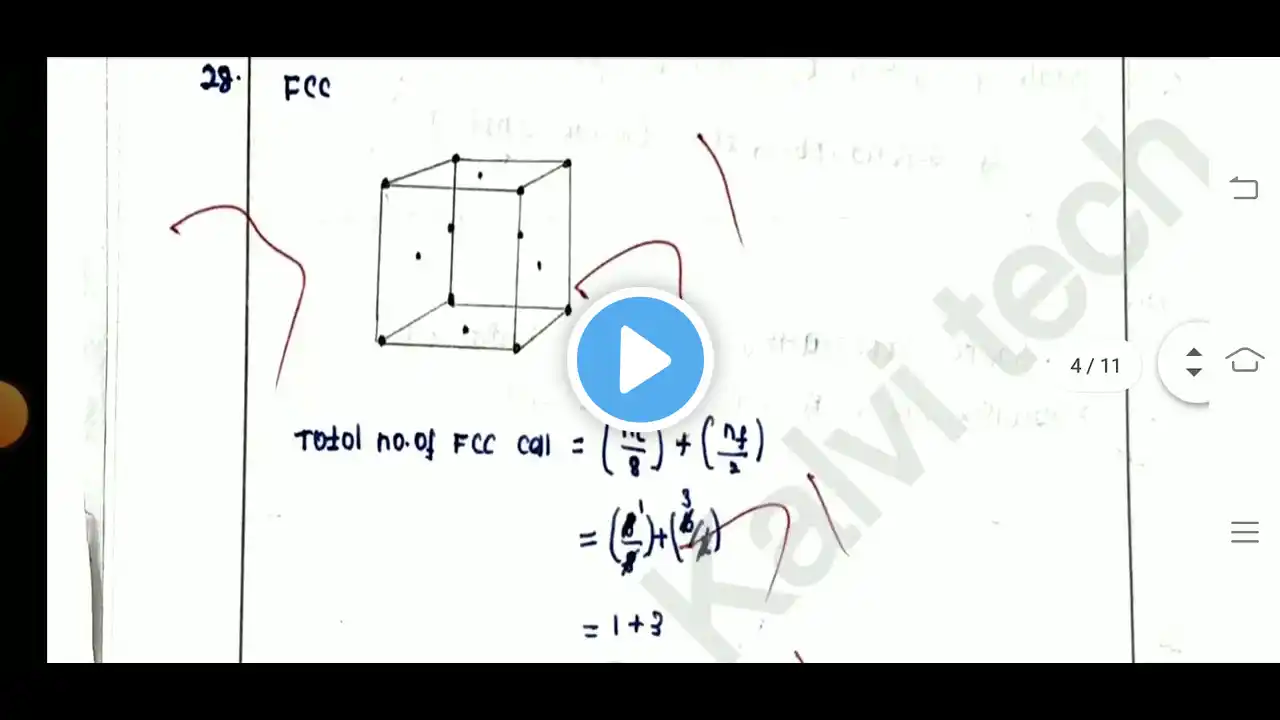 28.
FCC
4 / 11
Total no. of FCC Cell = (nc/8) + (nf/2)
= (8/8) + (6/2)
= 1 + 3
Kalvi tech